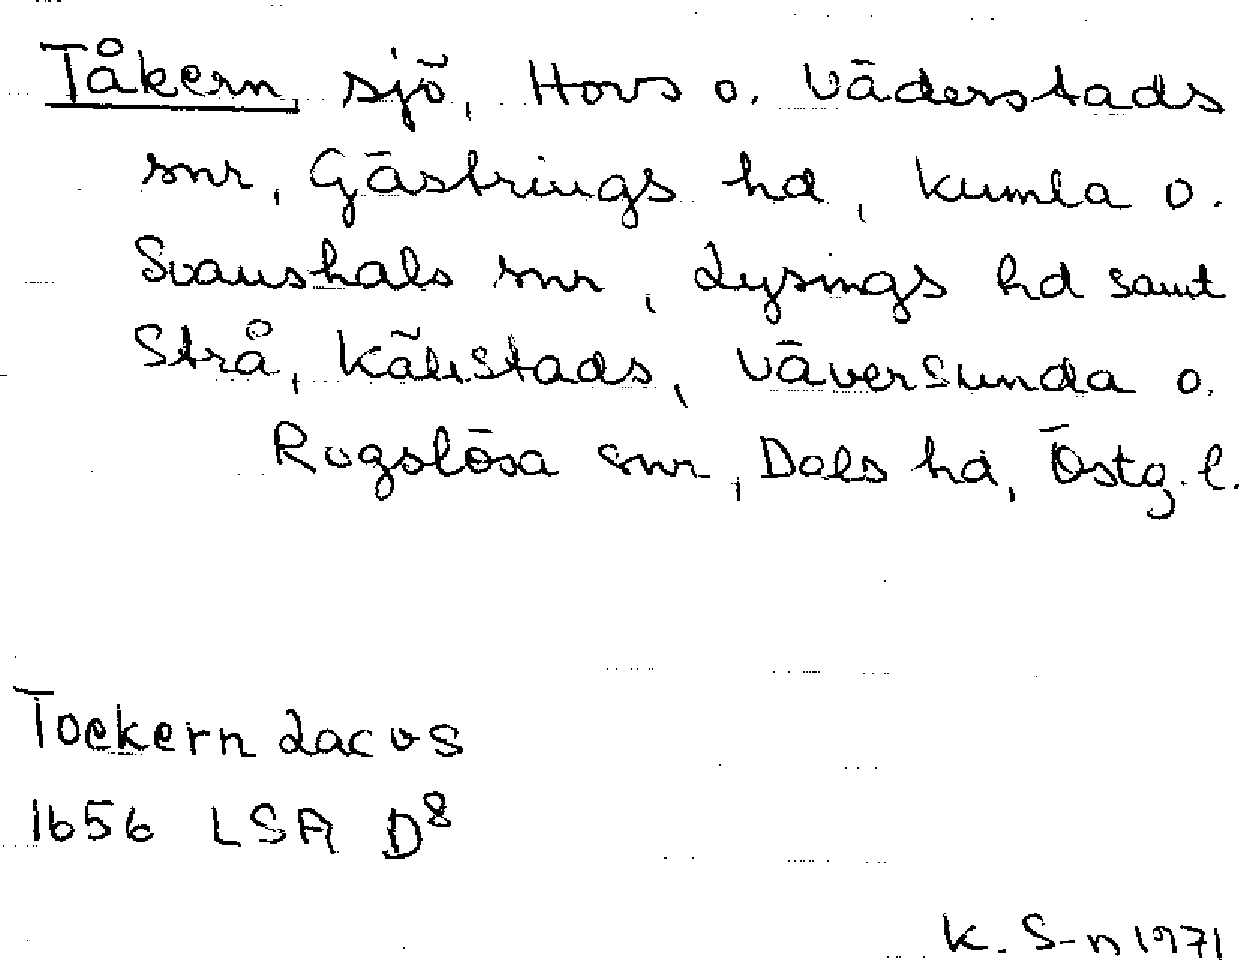 Tåkern, sjö, Hovs o. Väderstads
snr, Gästrings hd, Kumla o.
Svanshals snr, Lysings hd samt
Strå, Källstads, Väversunda o.
Rogslösa snr, Dals hd, Östg. l.
Tockern Lacus
1656 LSA D8
K. S-n 1971